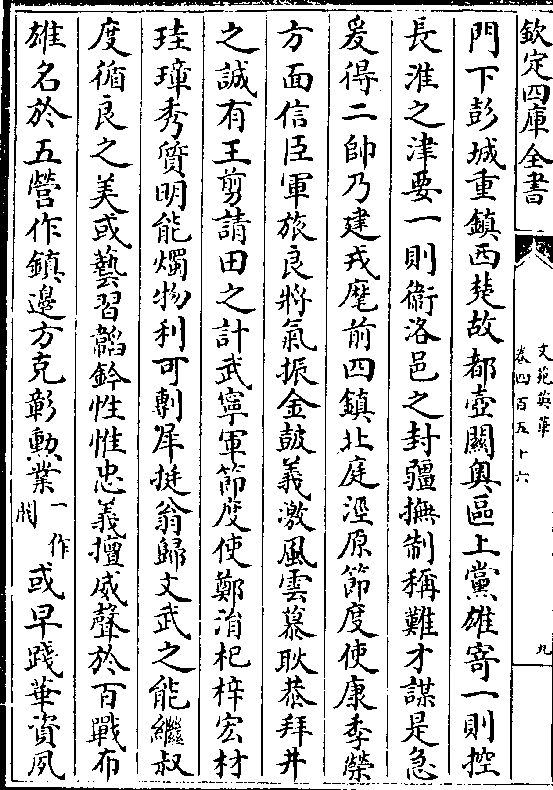 欽定四庫全書
文苑英華
卷四百五十六
九
門下彭城重鎮西楚故都壺關奧區上黨雄寄一則控
長淮之津要一則衞洛邑之封疆撫制稱難才謀是急
爰得二帥乃建戎麾前四鎮北庭涇原節度使康季榮
方面信臣軍旅良將氣振金鼓義激風雲慕耿恭拜井
之誠有王剪請田之計武寧軍節度使鄭涓杞梓宏材
珪璋秀質明能燭物利可剸犀挺翁歸文武之能繼叔
度循良之美或藝習韜鈐性惟忠義擅威聲於百戰布
雄名於五營作鎮邊方克彰勲業一作閥或早踐華資夙